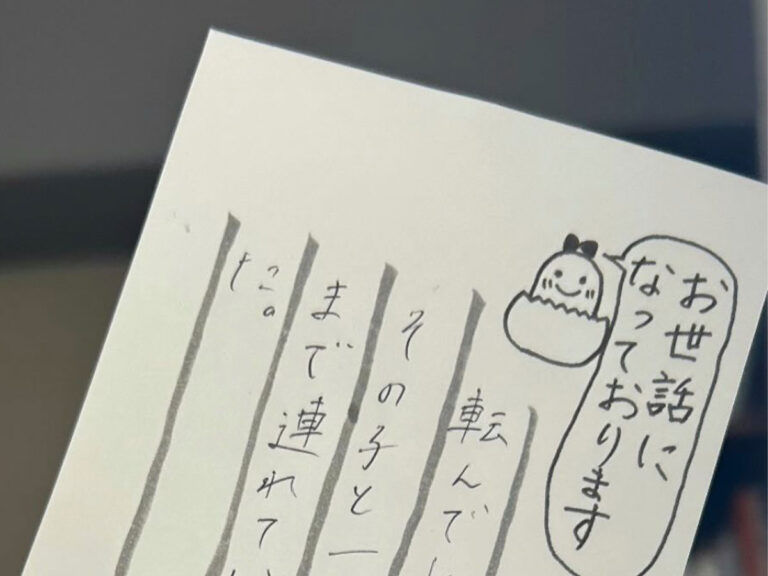 お世話に
なっております
転んで
その子と一
まで連れて
た。